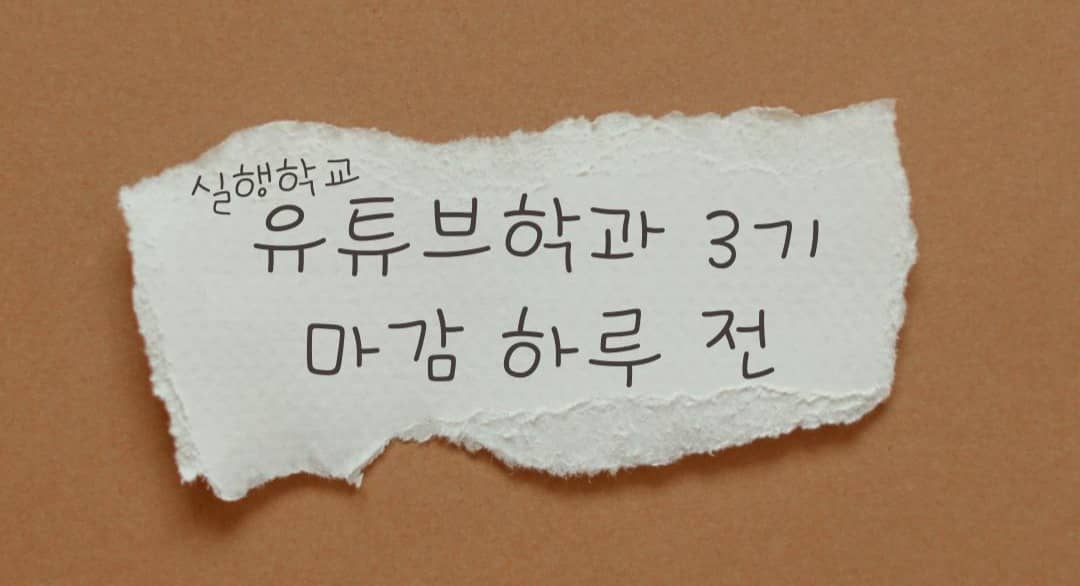 실행학교
유튜브학과 3기
마감 하루 전